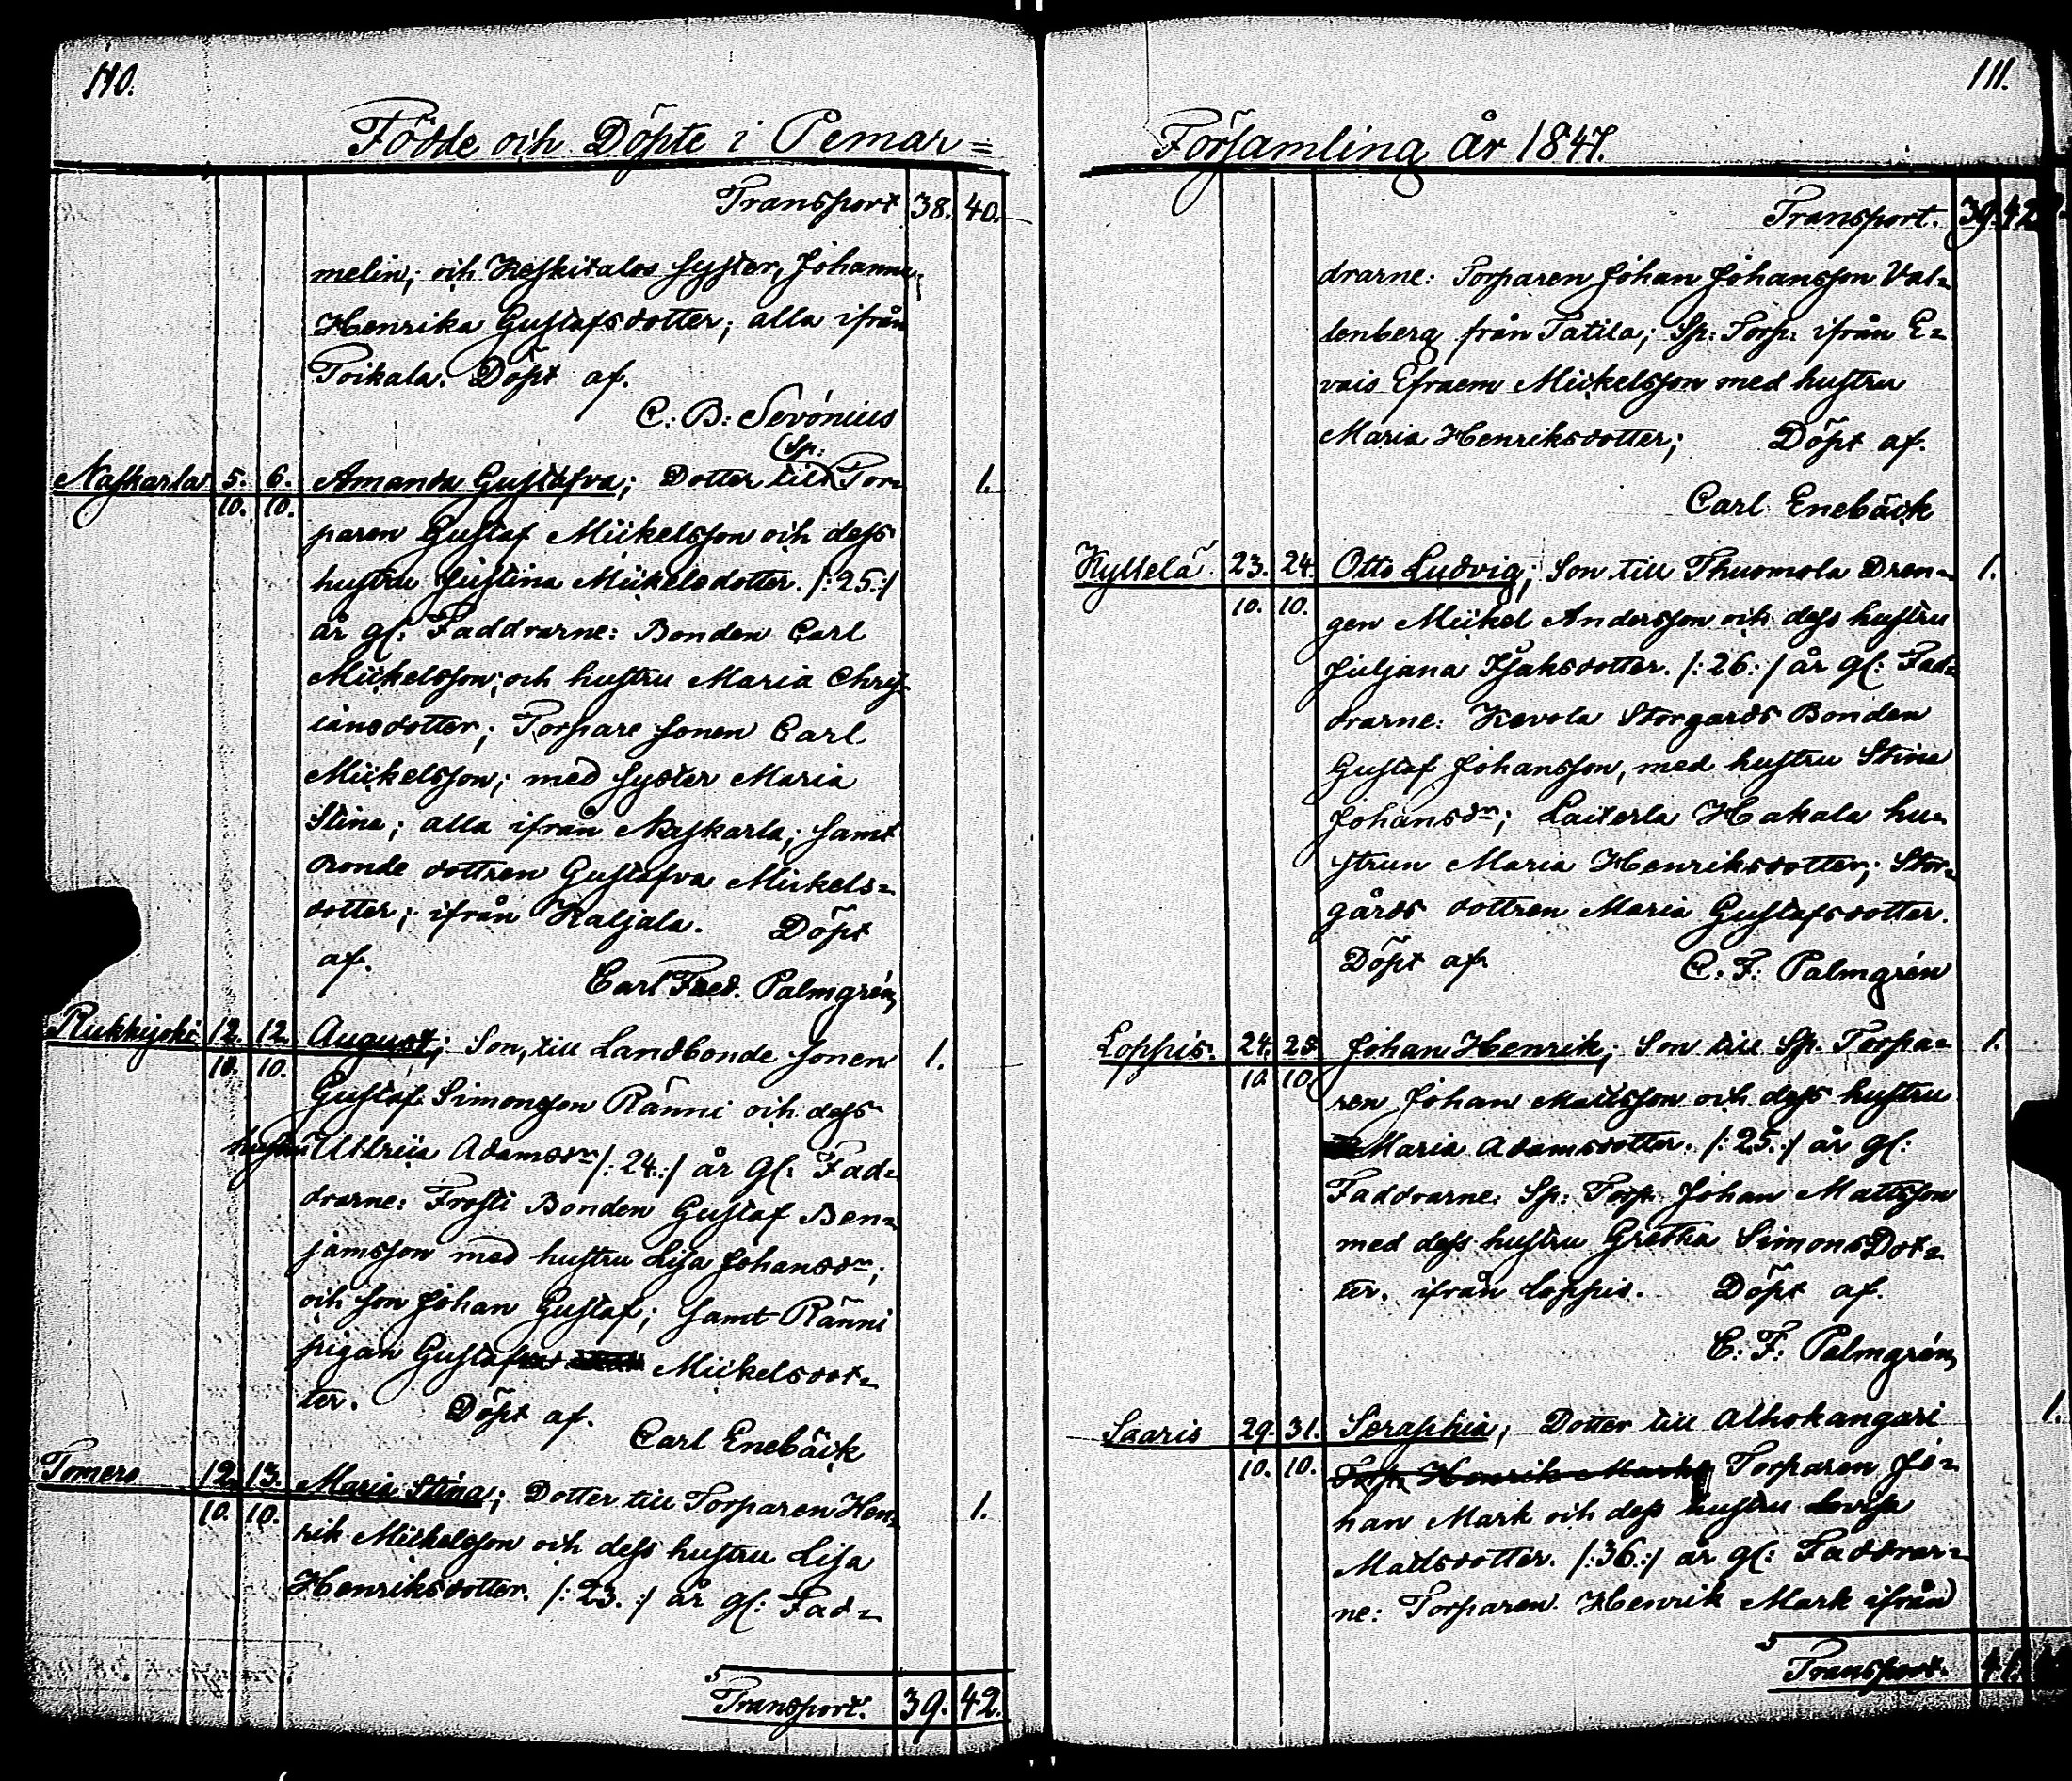 110.
Födde och Döpte i Pemar=
Transport 38. 40.
melin; och Keskitalos syster, Johanna
Henrika Gustafsdotter; alla ifrån
Toikala. Döpt af.
C. B: Sevónius
Sp:
Naskarla 5. 6. Amanda Gustafva; Dotter till Tor= 1.
10. 10.
paren Gustaf Mickelsson och dess
hustru Justina Mickelsdotter. /:25:/
år gl: Faddrarne: Bonden Carl
Mickelsson; och hustru Maria Chris
iansdotter; Torpare sonen Carl
Mickelsson; med syster Maria
Stina; alla ifrån Naskarla; samt
Bonde dottren Gustafva Mickels=
dotter; ifrån Kaljala. Döpt
af.
Carl Fred. Palmgrén
Rukkijoki 12. 12. August; Son, till Landbonde sonen 1.
10. 10.
Gustaf Simonsson Ränni och dess
hustru Ullrica Adamsdr /:24.:/ år gl: Fad=
drarne: Frosti Bonden Gustaf Ben=
jamsson med hustru Lisa Johansdr;
och son Johan Gustaf; samt Ränni
pigan Gustaf Mickelsdot=
ter. Döpt af.
Carl Enebäck
Tomero 12. 13. Maria Stina; Dotter till Torparen Hen= 1.
10. 10.
rik Mickelsson och dess hustru Lisa
Henriksdotter. /:23.:/ år gl: Fad=
Transport. 39. 42.
111.
Församling år 1847.
Transport. 39. 42
drarne: Torparen Johan Johansson Val=
lenberg från Tatila; Sp: Torp: ifrån E=
vais Efraem Mickelsson med hustru
Maria Henriksdotter; Döpt af.
Carl Enebäck
Kyllelä 23. 24. Otto Ludvig; Son till Thuomola Dren= 1.
10. 10.
gen Mickel Andersson och dess hustru
Juljana Isaksdotter. /:26:/ år gl: Fad=
drarne: Kevola Storgards Bonden
Gustaf Johansson, med hustru Stina
Johansdr; Laiterla Hakala hu=
strun Maria Henriksdotter; Stor=
gårds dottren Maria Gustafsdotter.
Döpt af. C. F. Palmgrén
Loppis. 24. 25. Johan Henrik; Son till Sp. Torpa= 1.
10. 10.
ren Johan Mattsson och dess hustru
Maria Adamsdotter. /:25.:/ år gl:
Faddrarne: Sp: Torp: Johan Mattsson
med dess hustru Gretha Simons Dot=
ter. ifrån Loppis. Döpt af.
C. F. Palmgrén
Saaris 29. 31. Seraphia; Dotter till Alhokangari 1.
10. 10.
Torp: Henrik Mark Torparen Jo=
han Mark och dess hustru Lovisa
Mattsdotter. /:36:/ år gl: Faddrar=
ne: Torparen Henrik Mark ifrån
Transport. 41.